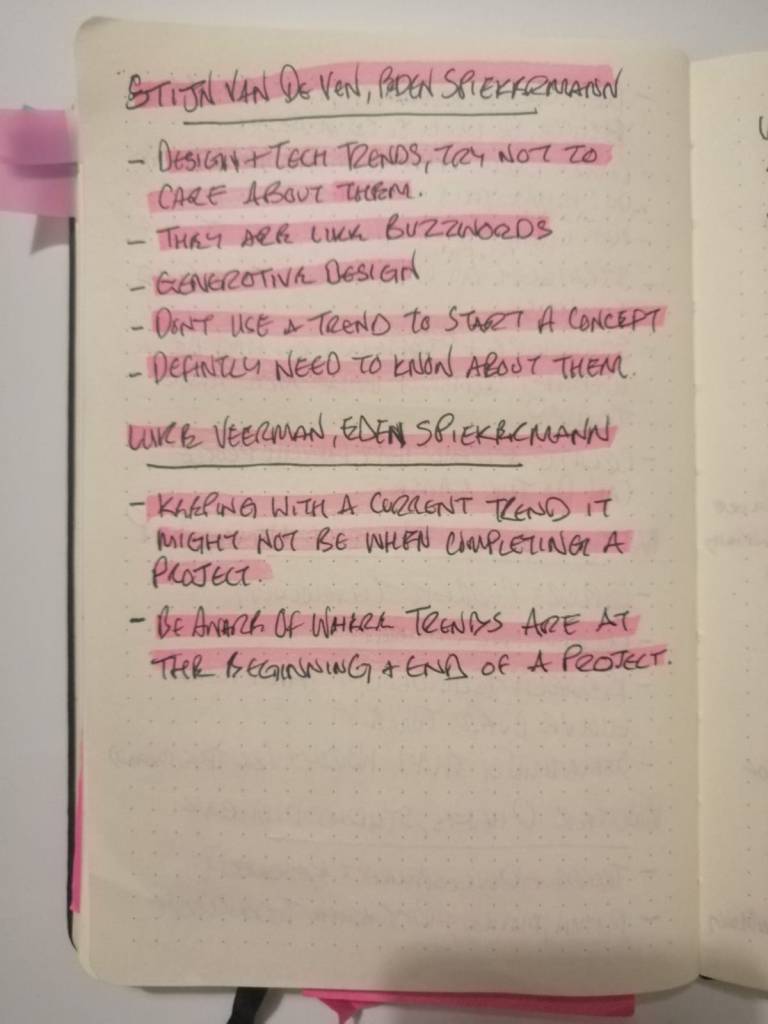 STIJN VAN DE VEN, EDEN SPIEKERMANN
- DESIGN + TECH TRENDS, TRY NOT TO
CARE ABOUT THEM.
- THEY ARE LIKE BUZZWORDS
- GENEROTIVE DESIGN
- DONT USE A TREND TO START A CONCEPT
- DEFINTLY NEED TO KNOW ABOUT THEM.
LUKE VEERMAN, EDEN SPIEKERMANN
- KEEPING WITH A CURRENT TREND IT
MIGHT NOT BE WHEN COMPLETING A
PROJECT.
- BE AWARE OF WHERE TRENDS ARE AT
THE BEGINNING + END OF A PROJECT.